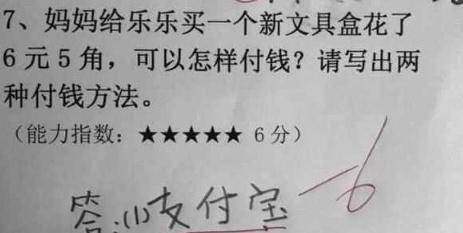 7、妈妈给乐乐买一个新文具盒花了
6元5角，可以怎样付钱？请写出两
种付钱方法。
（能力指数：★★★★★ 6分）
答:(1)支付宝 -6